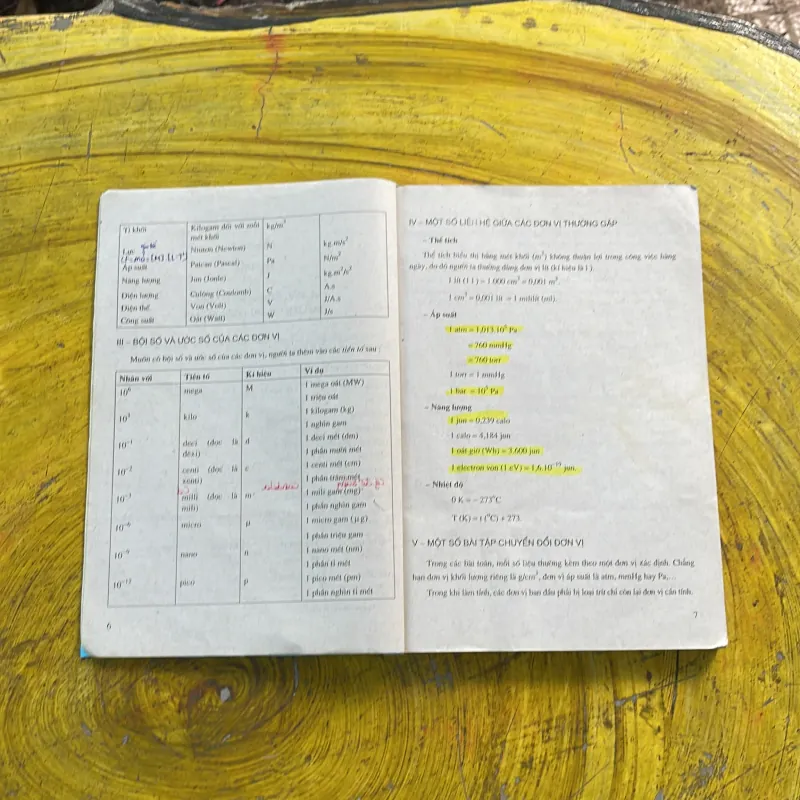 Tỉ khối Kilogam đối với mỗi mét khối kg/m³
Lực Niutơn (Newton) N kg.m/s²
Áp suất Patcan (Pascal) Pa N/m²
Năng lượng Jun (Joule) J kg.m²/s²
Điện lượng Culông (Coulomb) C A.s
Điện thế Von (Volt) V J/A.s
Công suất Oát (Watt) W J/s
III – BỘI SỐ VÀ ƯỚC SỐ CỦA CÁC ĐƠN VỊ
Muốn có bội số và ước số của các đơn vị, người ta thêm vào các tiền tố sau :
Nhân với Tiền tố Kí hiệu Ví dụ
10⁶ mega M 1 mega oát (MW)
1 triệu oát
10³ kilo k 1 kilogam (kg)
1 nghìn gam
10⁻¹ deci (đọc là đêxi) d 1 đeci mét (dm)
1 phần mười mét
10⁻² centi (đọc là xenti) c 1 centi mét (cm)
1 phần trăm mét
10⁻³ milli (đọc là mili) m 1 mili gam (mg)
1 phần nghìn gam
10⁻⁶ micro μ 1 micro gam (μg)
1 phần triệu gam
10⁻⁹ nano n 1 nano mét (nm)
1 phần tỉ mét
10⁻¹² pico p 1 pico mét (pm)
1 phần nghìn tỉ mét
6
IV – MỘT SỐ LIÊN HỆ GIỮA CÁC ĐƠN VỊ THƯỜNG GẶP
– Thể tích
Thể tích biểu thị bằng mét khối (m³) không thuận lợi trong công việc hàng
ngày, do đó người ta thường dùng đơn vị lít (kí hiệu là l ).
1 lít (1 l ) = 1 000 cm³ = 0,001 m³.
1 cm³ = 0,001 lít = 1 mililít (ml).
– Áp suất
1 atm = 1,013.10⁵ Pa
= 760 mmHg
= 760 torr
1 torr = 1 mmHg
1 bar = 10⁵ Pa
– Năng lượng
1 jun = 0,239 calo
1 calo = 4,184 jun
1 oát giờ (Wh) = 3.600 jun
1 electron von (1 eV) = 1,6.10⁻¹⁹ jun.
– Nhiệt độ
0 K = – 273°C
T (K) = t (°C) + 273.
V – MỘT SỐ BÀI TẬP CHUYỂN ĐỔI ĐƠN VỊ
Trong các bài toán, mỗi số liệu thường kèm theo một đơn vị xác định. Chẳng
hạn đơn vị khối lượng riêng là g/cm³, đơn vị áp suất là atm, mmHg hay Pa,...
Trong khi làm tính, các đơn vị ban đầu phải bị loại trừ chỉ còn lại đơn vị cần tính.
7